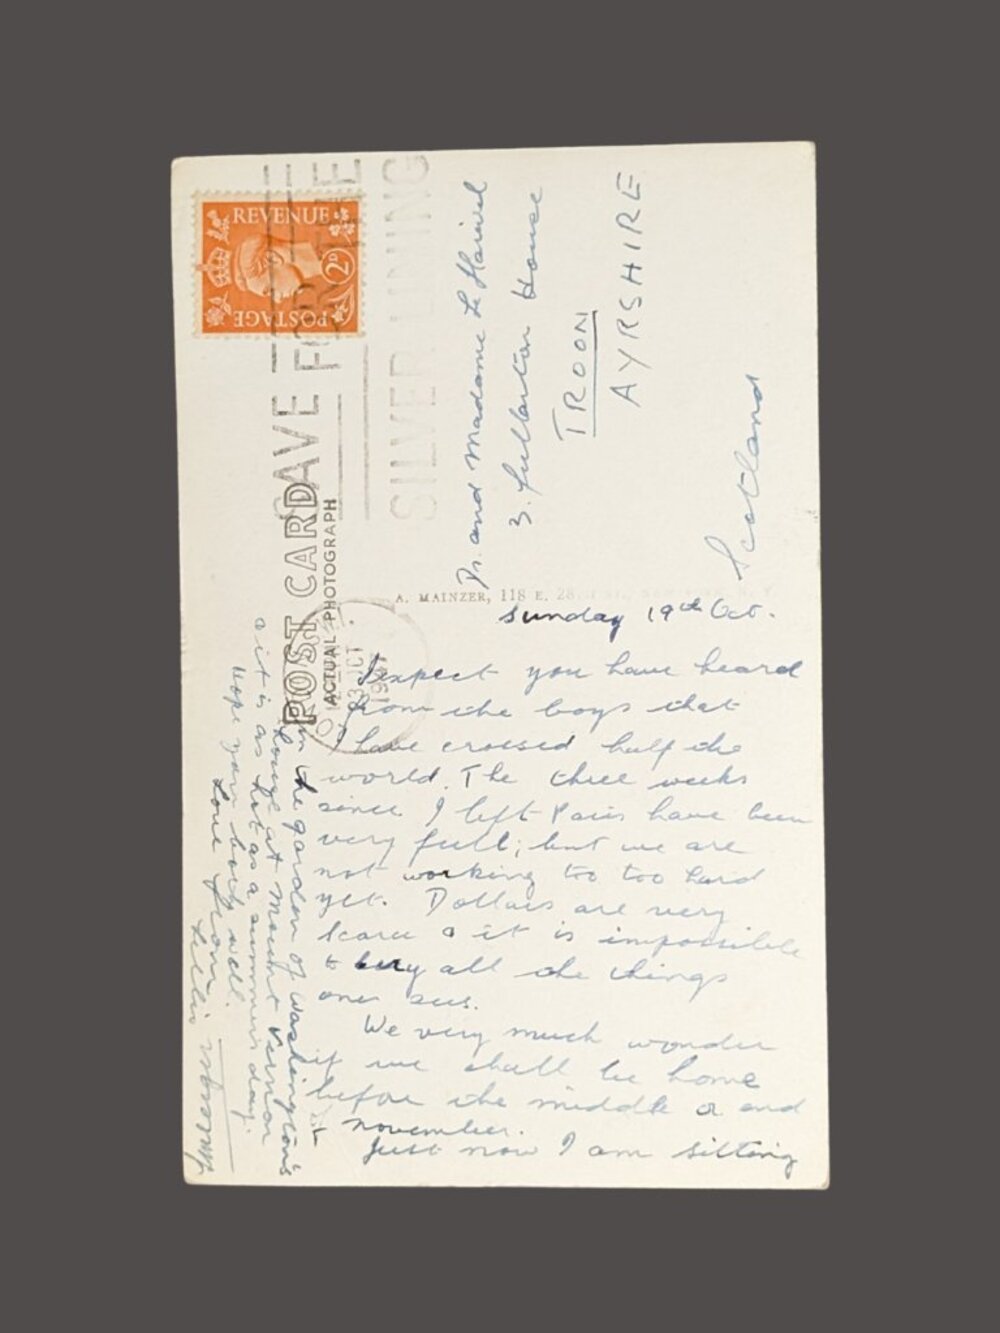 REVENUE
2D
POSTAGE
SAVE
FOR THE
SILVER LINING
POST CARD
ACTUAL PHOTOGRAPH
Dr. and Madame Le Harivel
3. Fullarton House
TROON
AYRSHIRE
Scotland
A. MAINZER, 118 E. 28
OCT
Sunday 19th Oct.
I expect you have heard
from the boys that
I have crossed half the
world. The three weeks
since I left Paris have been
very full; but we are
not working too too hard
yet. Dollars are very
scarce & it is impossible
to buy all the things
one sees.
We very much wonder
if we shall be home
before the middle or end
of november.
Just now I am sitting
in the garden of Washington's
house at Mount Vernon
& it is as hot as a summer's day.
Hope you both well.
Love from